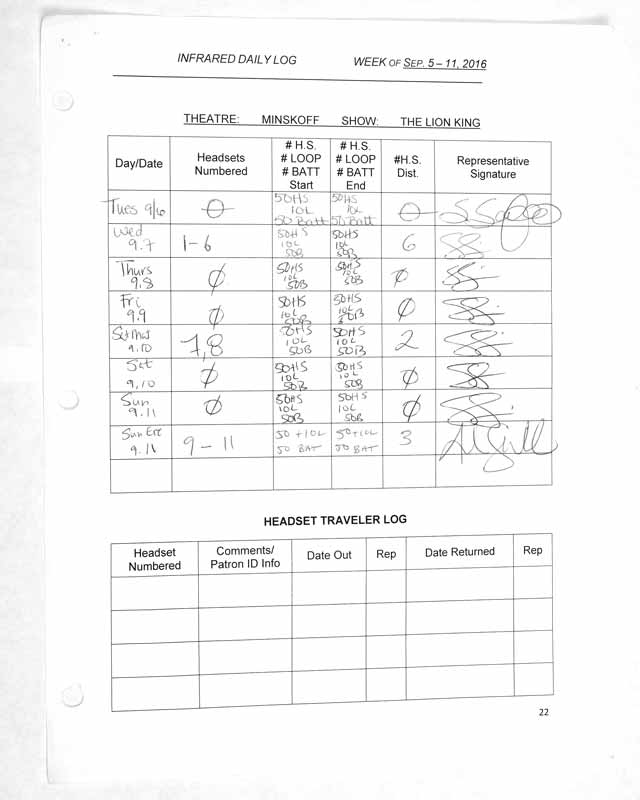 INFRARED DAILY LOG WEEK OF SEP. 5 – 11, 2016
THEATRE: MINSKOFF SHOW: THE LION KING
Day/Date
Headsets
Numbered
# H.S.
# LOOP
# BATT
Start
# H.S.
# LOOP
# BATT
End
#H.S.
Dist.
Representative
Signature
Tues 9/6
50HS
10L
50 Batt
50HS
10L
50 Batt
Wed
9.7
1-6
50HS
10L
50B
50HS
10L
50B
6
Thurs
9.8
Ø
50HS
10L
50B
50HS
10L
50B
Ø
Fri
9.9
Ø
50HS
10L
50B
50HS
10L
50B
Ø
Sat Mat
9.10
7,8
50HS
10L
50B
50HS
10L
50B
2
Sat
9.10
Ø
50HS
10L
50B
50HS
10L
50B
Ø
Sun
9.11
Ø
50HS
10L
50B
50HS
10L
50B
Ø
Sun Eve
9.11
9 – 11
50 + 10L
50 BAT
50 + 10L
50 BAT
3
HEADSET TRAVELER LOG
Headset
Numbered
Comments/
Patron ID Info
Date Out
Rep
Date Returned
Rep
22